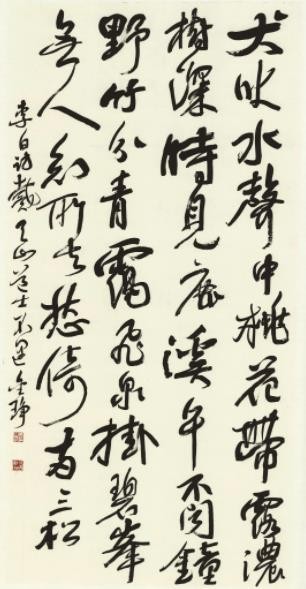 犬吠水聲中桃花帶露濃
樹深時見鹿溪午不聞鐘
野竹分青靄飛泉掛碧峯
無人知所去愁倚兩三松
李白訪戴天山道士不遇 金